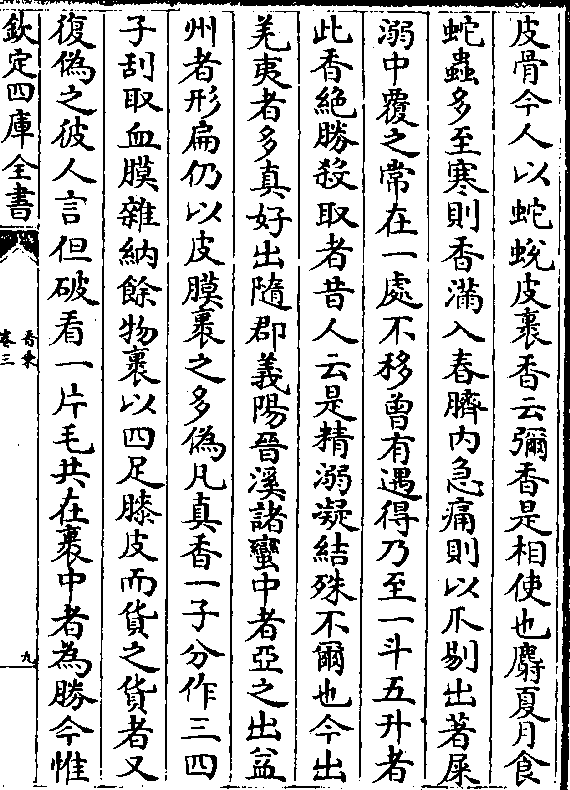 皮骨今人以蛇蛻皮裹香云彌香是相使也麝夏月食
蛇蟲多至寒則香滿入春臍內急痛則以爪剔出著屎
溺中覆之常在一處不移曾有遇得乃至一斗五升者
此香絶勝殺取者昔人云是精溺凝結殊不爾也今出
羌夷者多真好出隨郡義陽晉溪諸蠻中者亞之出益
州者形扁仍以皮膜裹之多偽凡真香一子分作三四
子刮取血膜雜納餘物裹以四足膝皮而貨之貨者又
復偽之彼人言但破看一片毛共在裹中者為勝今惟
欽定四庫全書
香乗
卷三
九